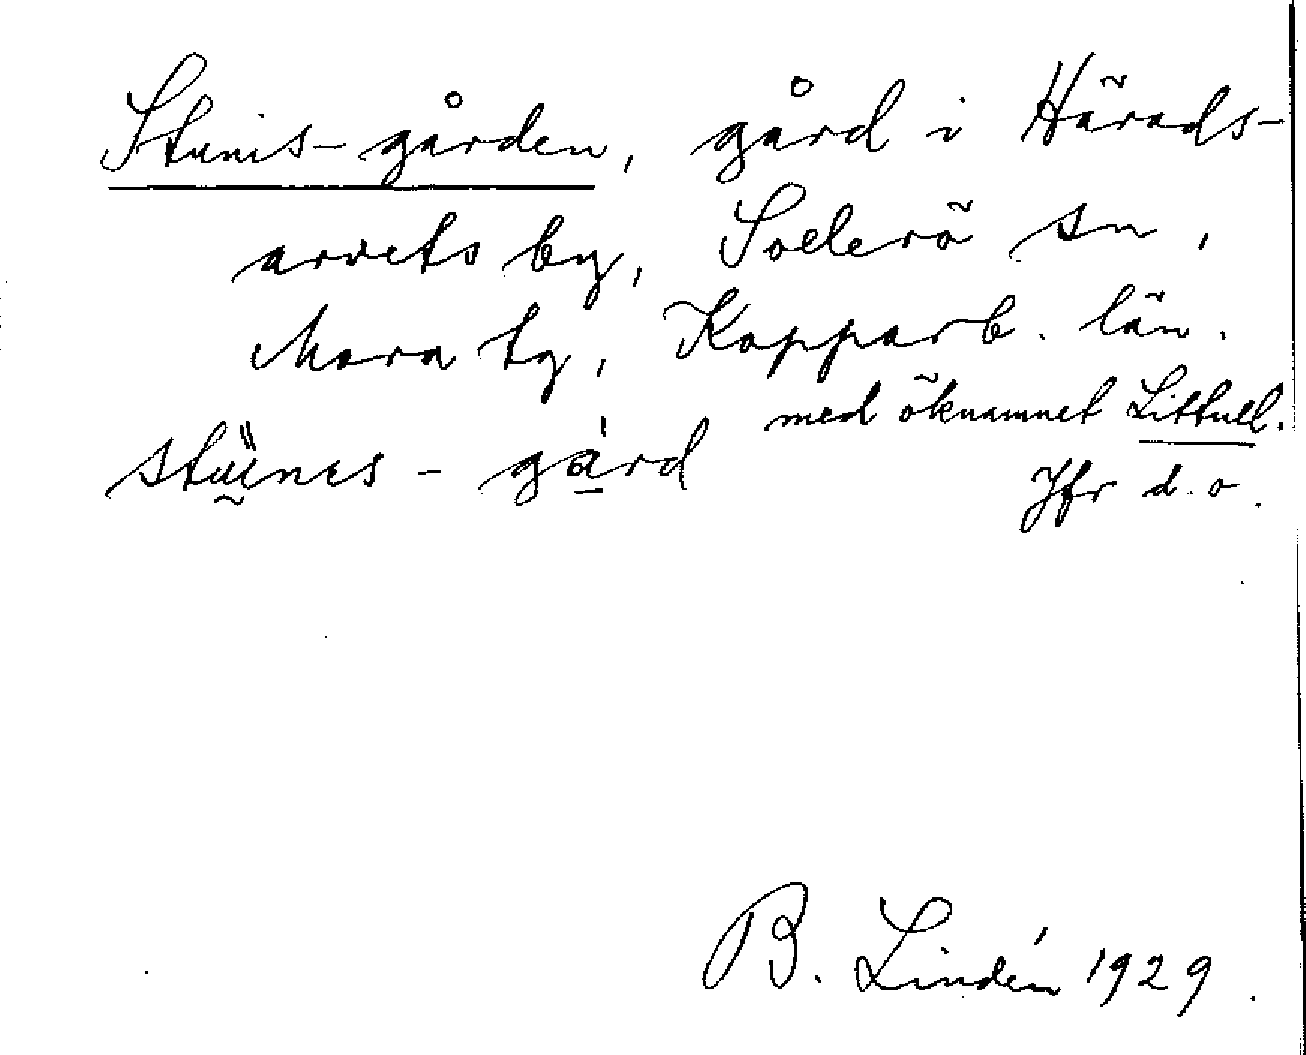 Stunis-gården, gård i Härads-
arvets by, Sollerö sn,
Mora tg, Kopparb. län.
med öknamnet Littull.
stu̯ines - gård
Jfr d. o.
B. Lindén 1929.